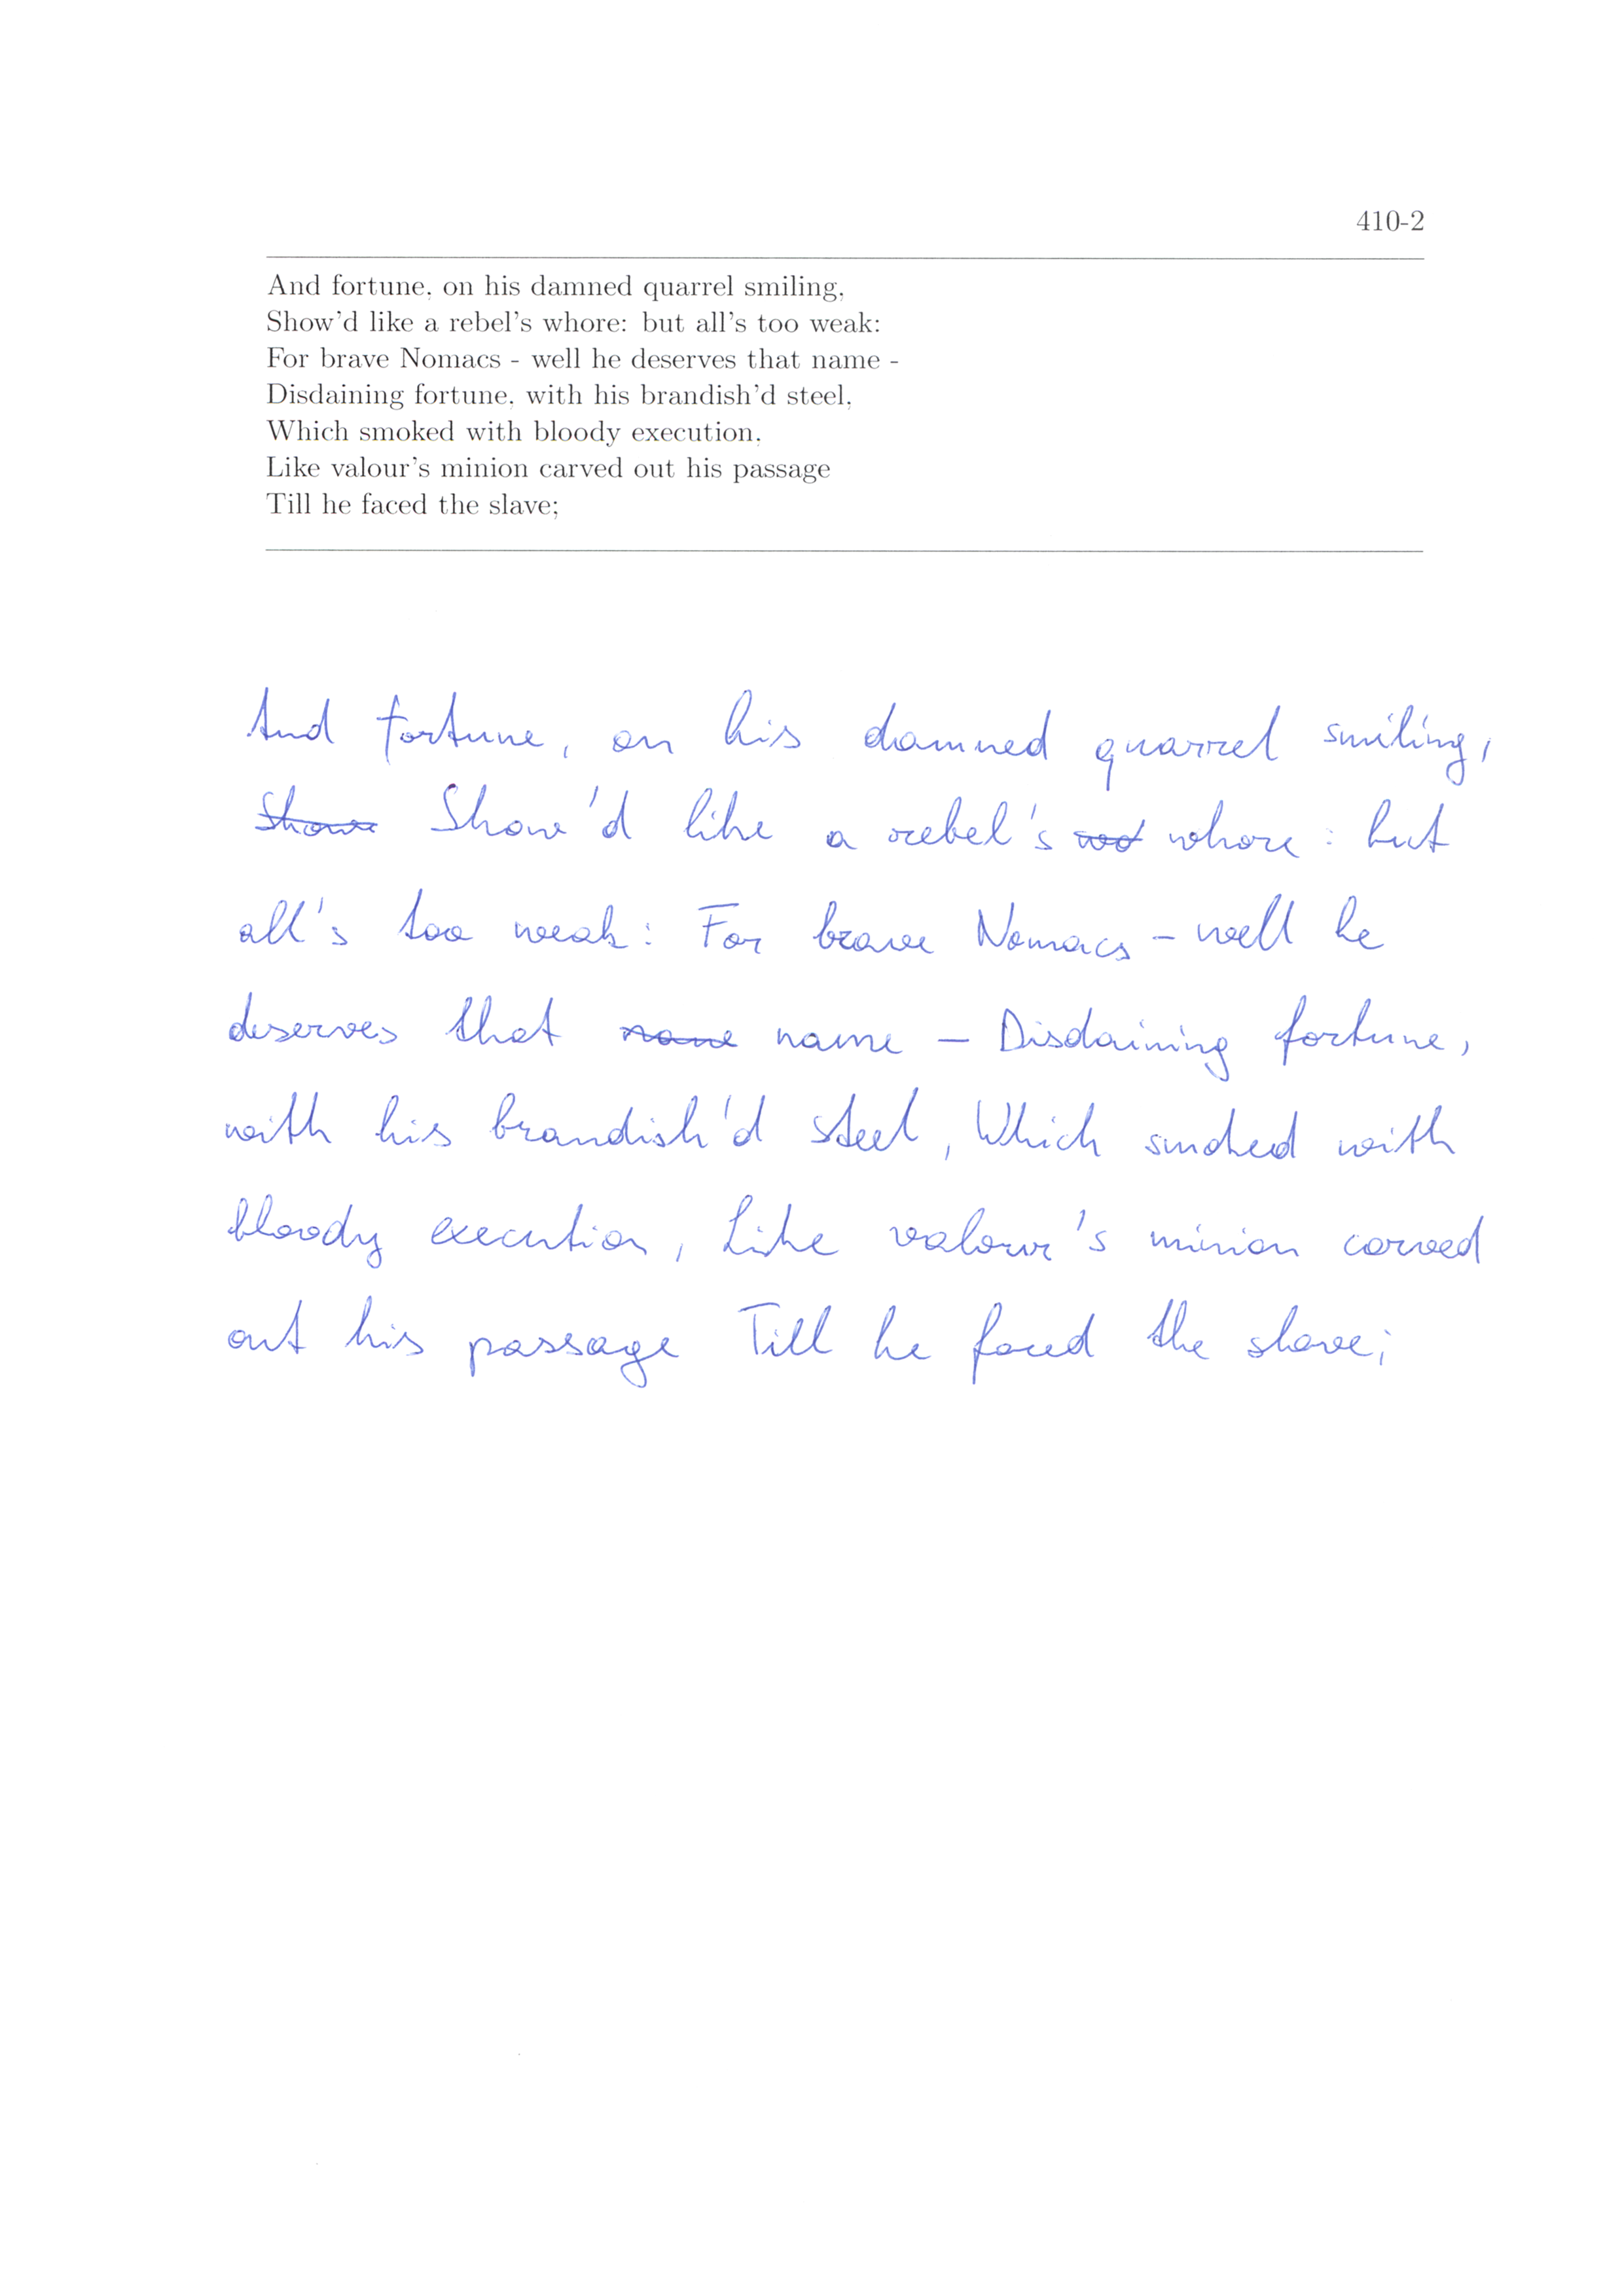 410-2
And fortune, on his damned quarrel smiling,
Show'd like a rebel's whore: but all's too weak:
For brave Nomacs - well he deserves that name -
Disdaining fortune, with his brandish'd steel,
Which smoked with bloody execution,
Like valour's minion carved out his passage
Till he faced the slave;
And fortune, on his damned quarrel smiling,
Show'd like a rebel's whore: but
all's too weak: For brave Nomacs - well he
deserves that name - Disdaining fortune,
with his brandish'd steel, Which smoked with
bloody execution, Like valour's minion carved
out his passage Till he faced the slave;